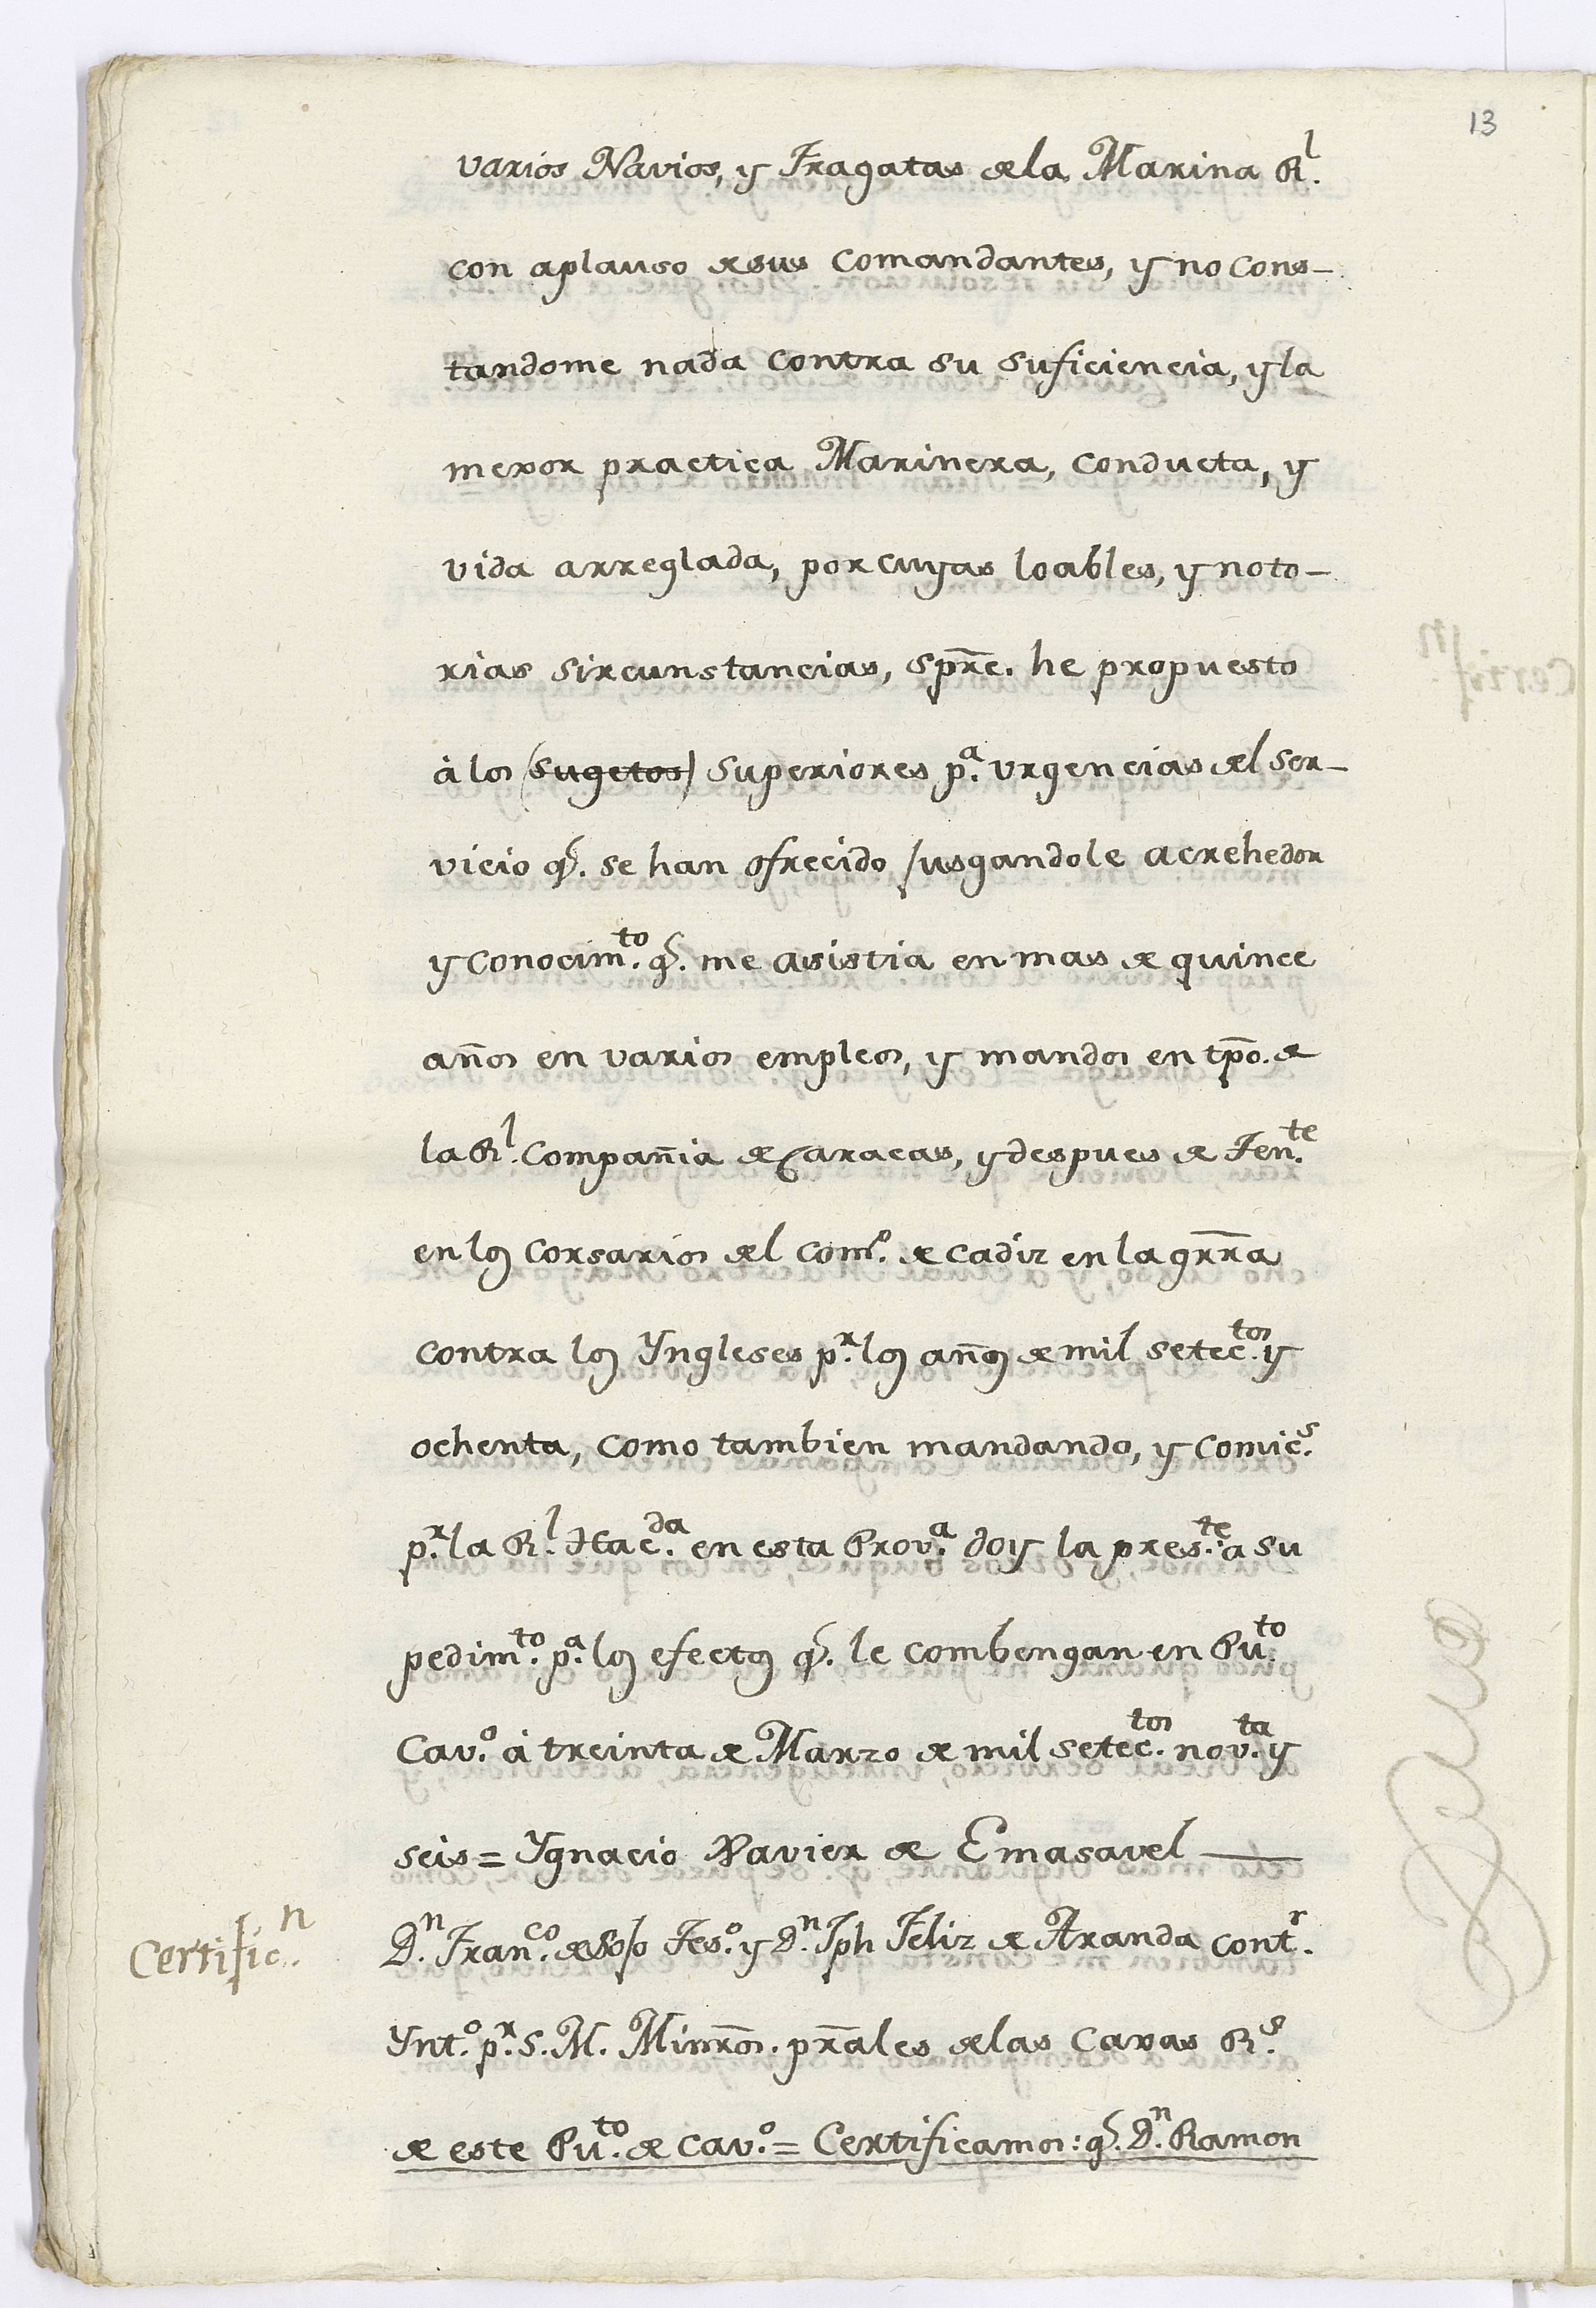 13
varios Navios, y Fragatas dela Marina Rl.
con aplauso desus Comandantes, y no cons-
tandome nada contra su suficiencia, y la
mexor practica Marinera, conducta, y
vida arreglada, por cuyas loables, y noto-
rias sircunstancias, spre. he propuesto
à los (sugetos) superiores pa. urgencias del ser-
vicio q. se han ofrecido jusgandole acrehedor
y conocimto. q. me asistia en mas de quince
años en varios empleos, y mandos en tpo. de
la Rl. Compañia de Caracas, y despues de Tente.
en los corsarios del como. de cadiz en la grra
contra los Yngleses pr. los años de mil setectos. y
ochenta, como tambien mandando, y comics.
pr. la Rl. Hacda. en esta Prova. doy la preste. a su
pedimto. pa. los efectos q. le combengan en Puto.
Cavo. à treinta de Marzo de mil setectos. novta. y
seis = Ygnacio Xavier de Emasavel
Certificn. Dn. Franco. de Sojo Teso. y Dn. Jph Feliz de Aranda contr.
Ynto. pr. S. M. Minros. prales delas Caxas Rs.
de este Puto. de Cavo. = Certificamos: q. Dn. Ramon